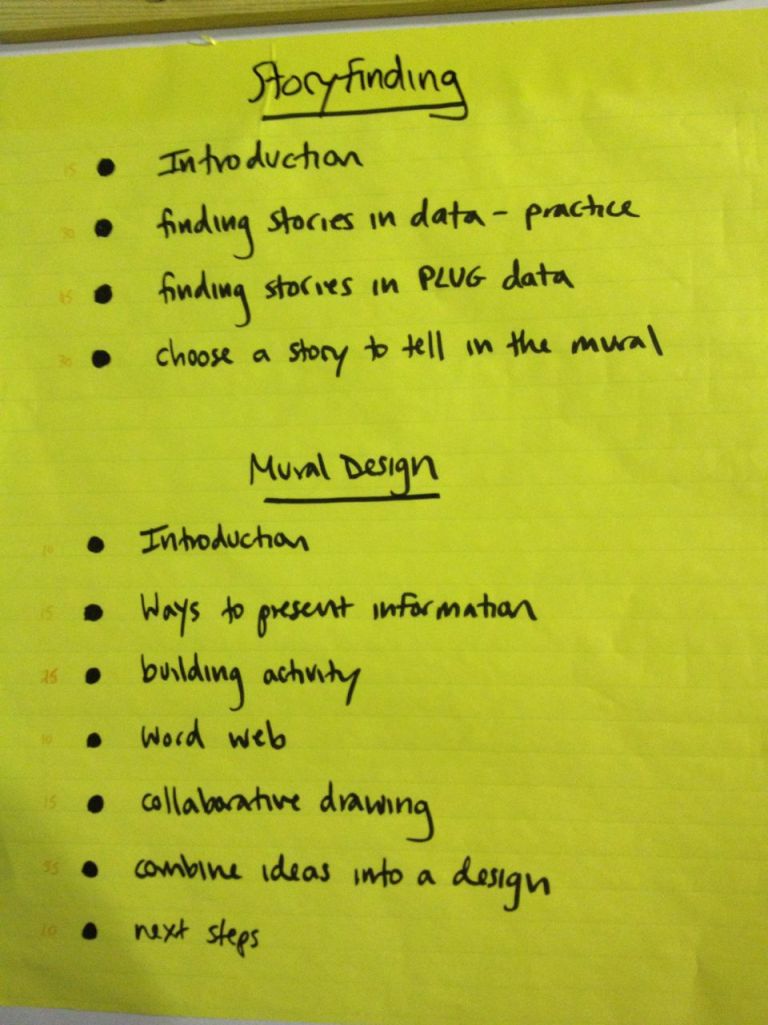 Storyfinding
15 • Introduction
30 • finding stories in data - practice
45 • finding stories in PLUG data
30 • choose a story to tell in the mural
Mural Design
10 • Introduction
15 • Ways to present information
25 • building activity
10 • word web
15 • collaborative drawing
• combine ideas into a design
10 • next steps